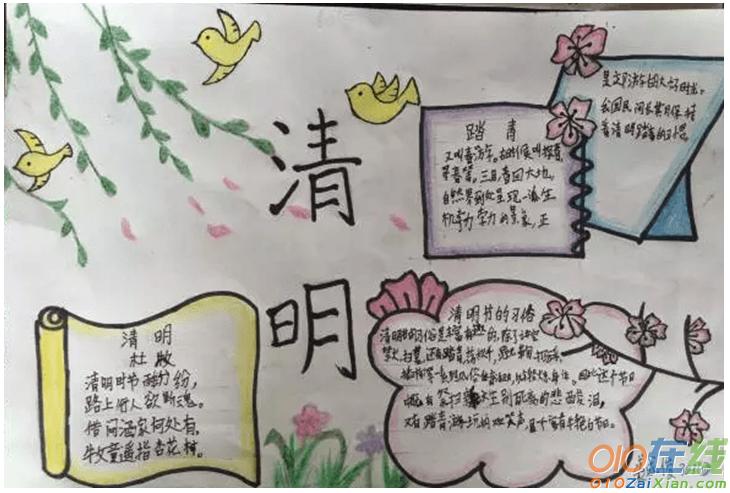 清
明
踏青
又叫春游。古时候叫探春、
寻春等。三月,春回大地,
自然界到处呈现一派生
机勃勃的景象,正
是交游的大好时光。
我国民间长期保持
着清明踏青的习惯。
清明
杜牧
清明时节雨纷纷,
路上行人欲断魂。
借问酒家何处有,
牧童遥指杏花村。
清明节的习俗
清明节的习俗是丰富有趣的,除了讲究
禁火、扫墓,还有踏青、荡秋千、
这个节日
生别死离的悲酸泪,
又有踏青游玩的欢笑声,
010在线
010ZaiXian.com